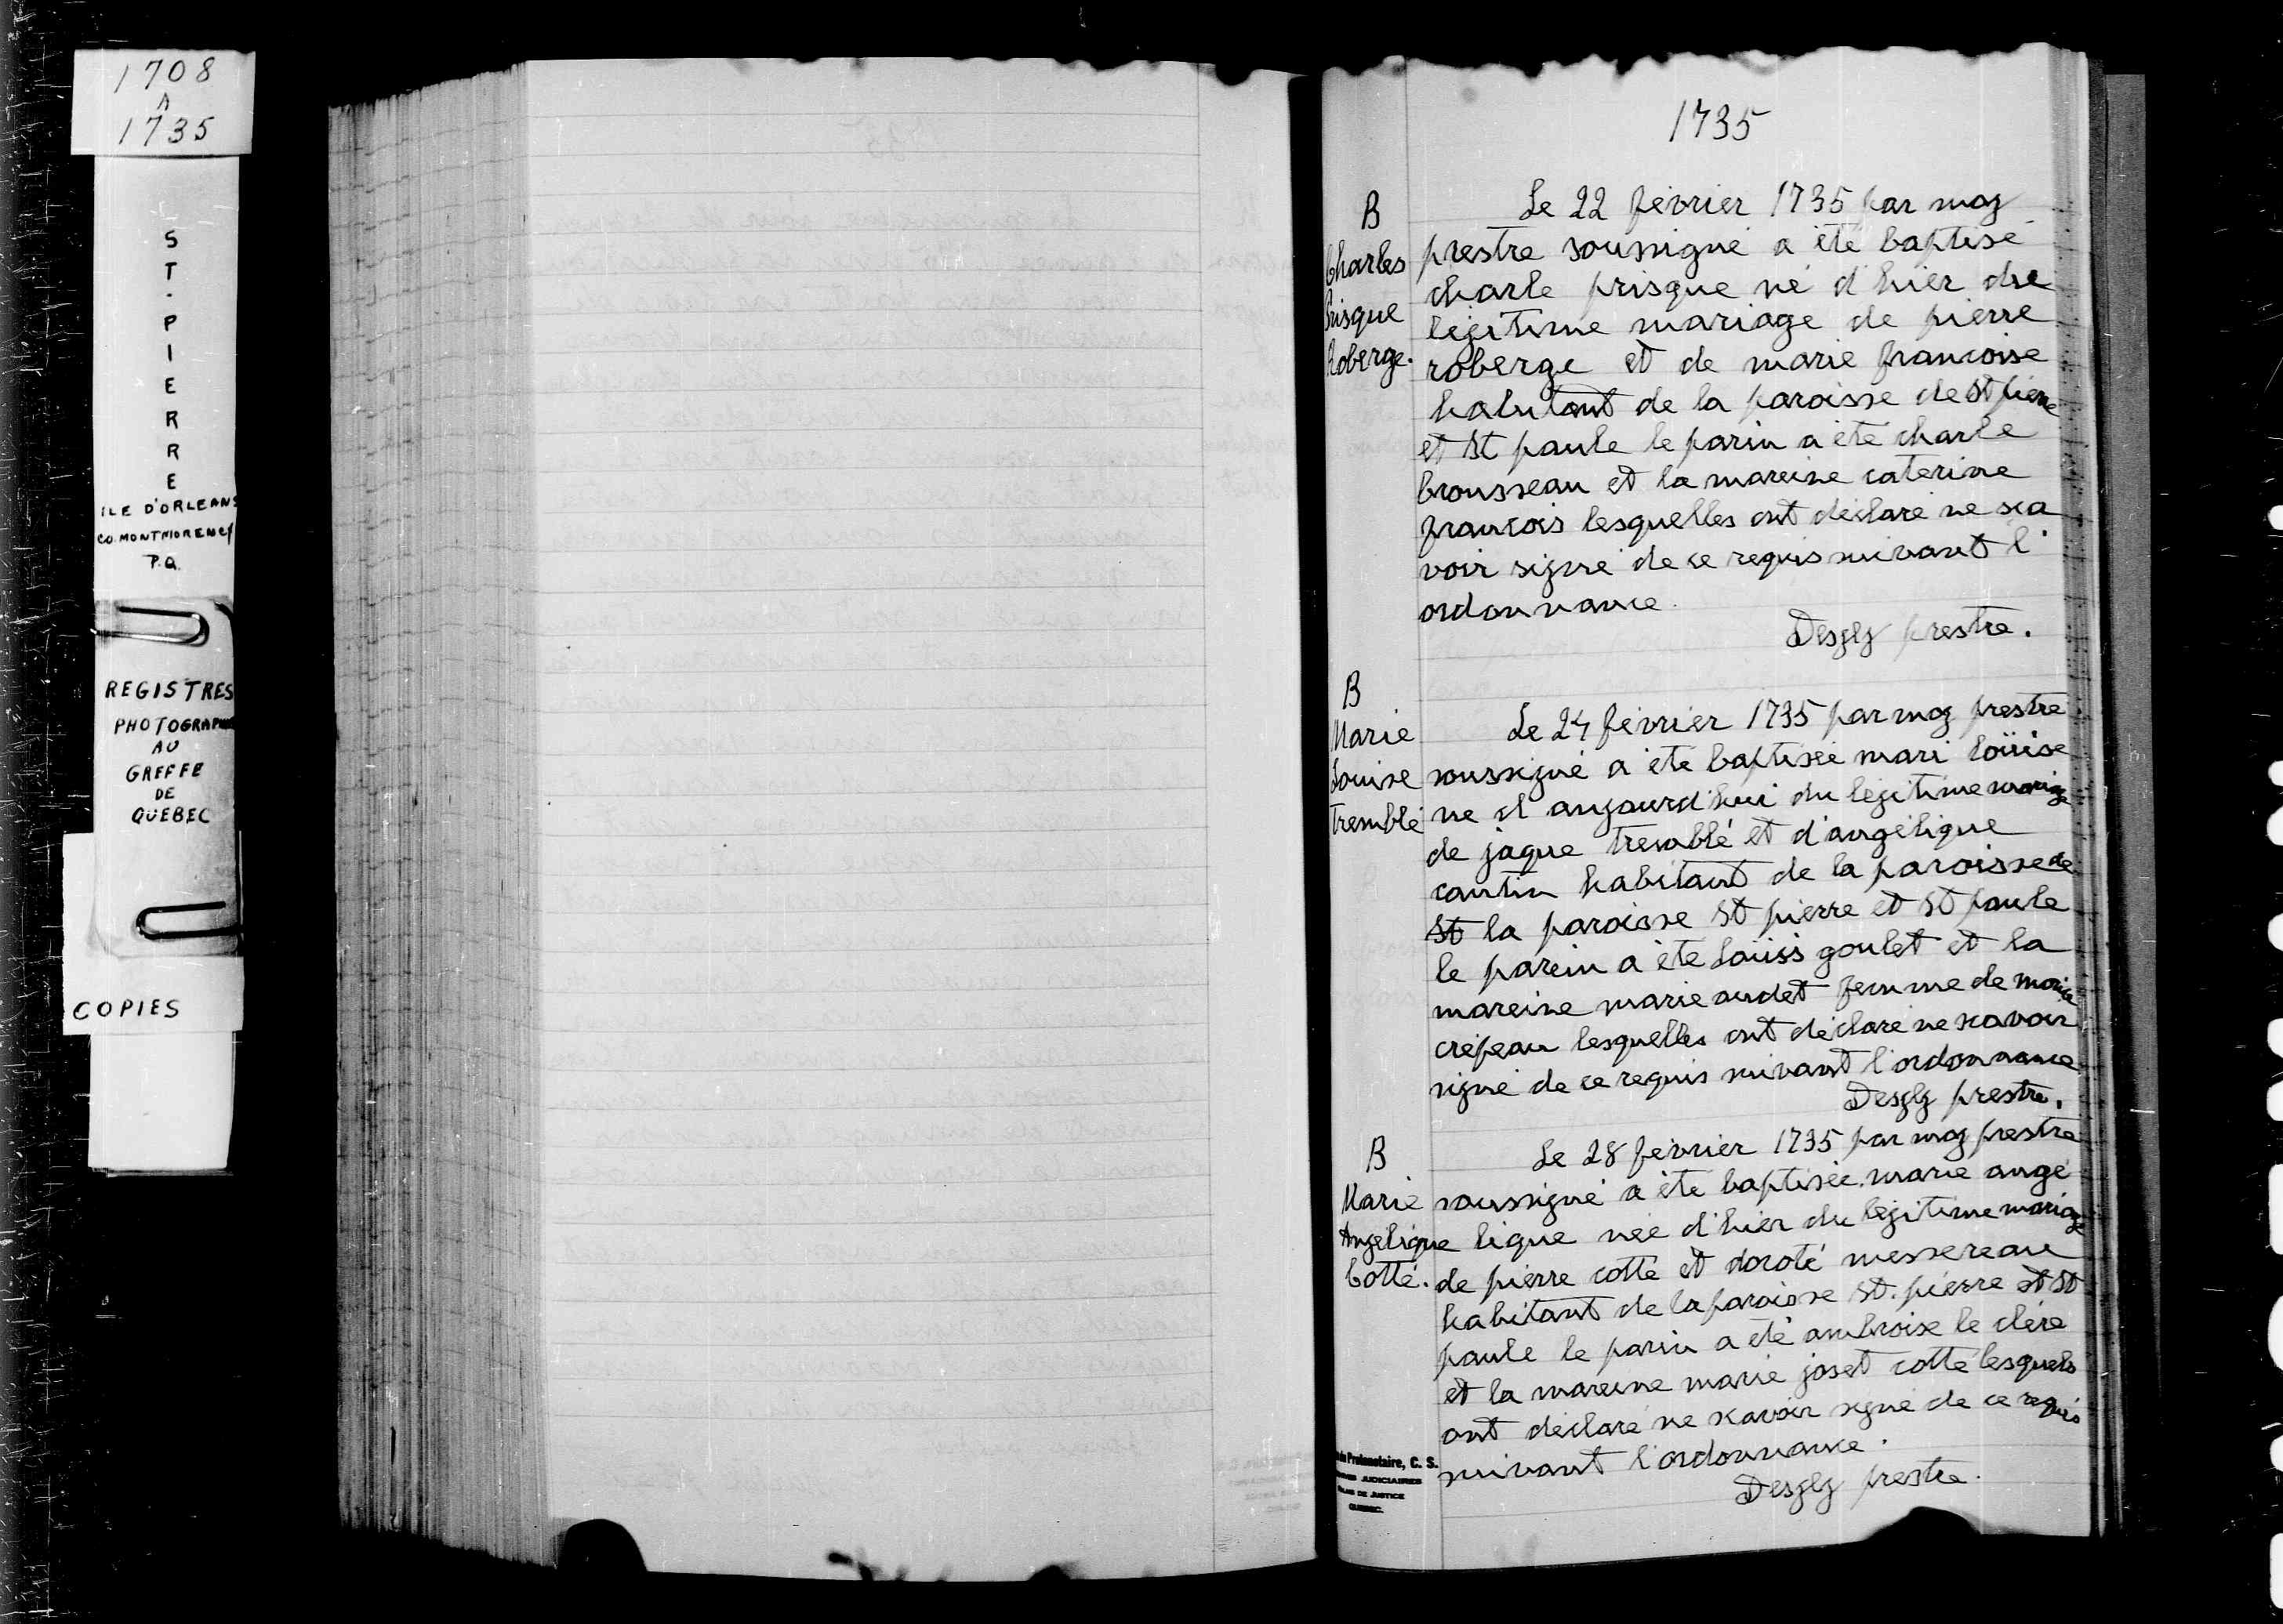 1708
A
1735
ST-PIERRE
ILE D'ORLEANS
CO. MONTMORENCY
P.Q.
REGISTRES
PHOTOGRAPHIE
AU
GREFFE
DE
QUEBEC
COPIES
1735
B
Charles
Prisque
Roberge.
Le 22 fevrier 1735 par moy
prestre soussigné a été baptisé
charle prisque né d'hier du
légitime mariage de pierre
roberge et de marie francoise
habitant de la paroisse de St pierre
et St paule le parin a été charle
brousseau et la mareine caterine
francois lesquelles ont déclaré ne sca
voir signé de ce requis suivant l'
ordonnance.
Desgly prestre.
B
Marie
Louise
Tremblé
Le 24 fevrier 1735 par moy prestre
soussigné a été baptisée mari Loüise
ne d aujourd'hui du légitime mariage
de jaque tremblé et d'angélique
cantin habitant de la paroisse de
St la paroisse St pierre et St paule
le parein a été Loüis goulet et la
mareine marie audet femme de
crépeau lesquelles ont déclaré ne scavoir
signé de ce requis suivant l'ordonnance
Desgly prestre.
B
Marie
Angelique
Cotté.
Le 28 fevrier 1735 par moy prestre
soussigné a été baptisée marie angé
lique née d'hier du légitime mariage
de pierre cotté et doroté messereau
habitant de la paroisse St. pierre et St
paule le parin a été ambroise le clere
et la mareine marie joset cotté lesquels
ont déclaré ne scavoir signé de ce requis
suivant l'ordonnance.
Desgly prestre.
Protonotaire, C. S.
JUDICIAIRES
DE JUSTICE
QUEBEC.